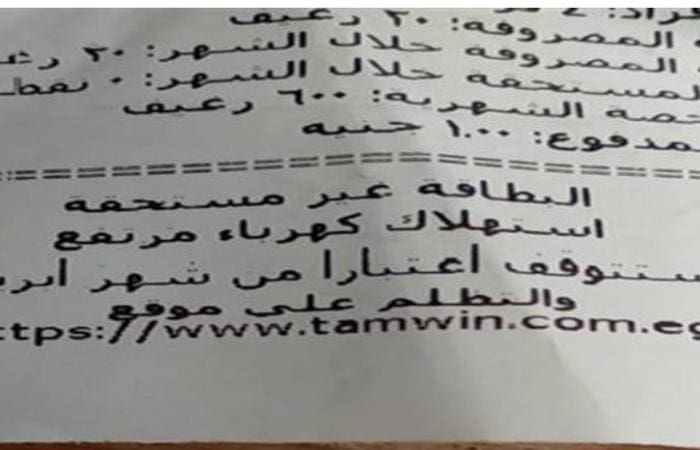 المصروفة: ٢٠ رغيف
المصروفة خلال الشهر: ٢٠
خلال الشهر: ٠
الشهرية: ٦٠٠ رغيف
١.٠٠ جنيه
================================
البطاقة غير مستحقة
استهلاك كهرباء مرتفع
ستتوقف اعتبارا من شهر
والتظلم على موقع
ttps://www.tamwin.com.eg